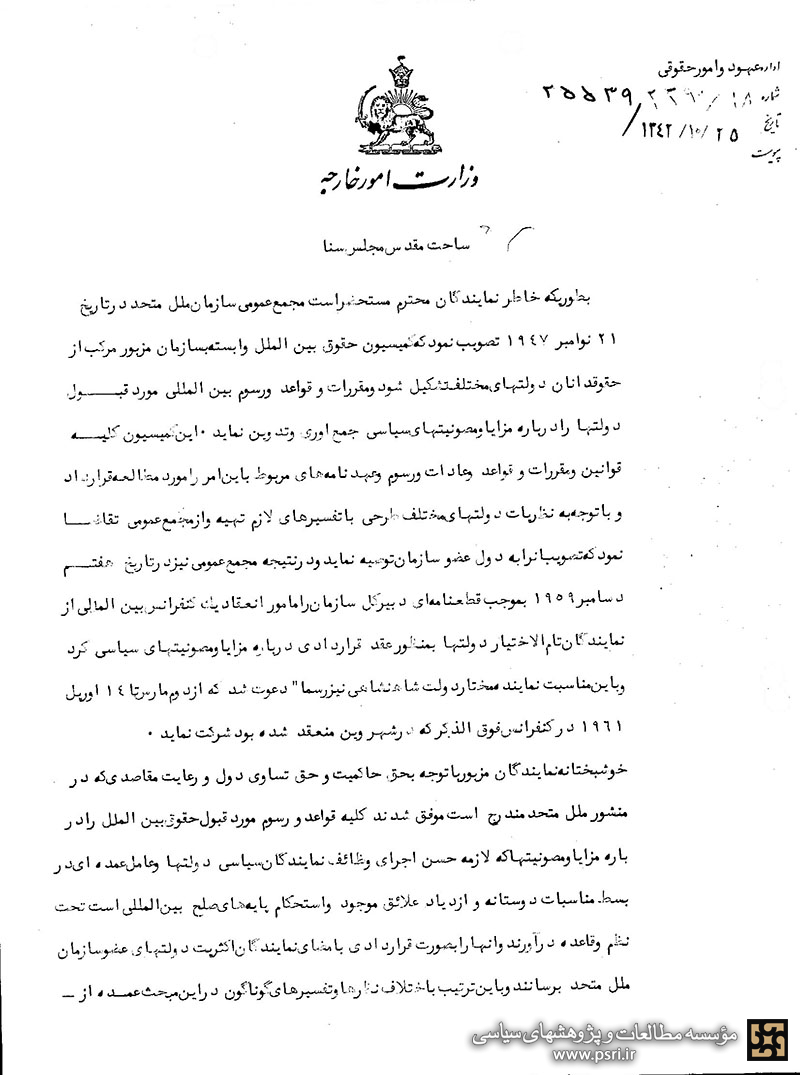 اداره عهود و امور حقوقی
شماره ۲۵۵۳۹ / ۱۸
تاریخ ۱۳۴۲/۱۰/۲۵
پیوست
وزارت امور خارجه
ساحت مقدس مجلس سنا
بطوریکه خاطر نمایندگان محترم مستحضر است مجمع عمومی سازمان ملل متحد در تاریخ
۲۱ نوامبر ۱۹٤۷ تصویب نمود که کمیسیون حقوق بین الملل وابسته بسازمان مزبور مرکب از
حقوقدانان دولتهای مختلف تشکیل شود و مقررات و قواعد و رسوم بین المللی مورد قبول
دولتها را درباره مزایا و مصونیتهای سیاسی جمع اوری و تدوین نماید ۰ این کمیسیون کلیه
قوانین و مقررات و قواعد و عادات و رسوم و عهدنامه های مربوط باین امر را مورد مطالعه قرار داد
و با توجه به نظریات دولتهای مختلف طرحی با تفسیرهای لازم تهیه و از مجمع عمومی تقاضا
نمود که تصویب انرا به دول عضو سازمان توصیه نماید و در نتیجه مجمع عمومی نیز در تاریخ هفتم
دسامبر ۱۹۵۹ بموجب قطعنامه ای دبیر کل سازمان را مامور انعقاد یک کنفرانس بین المللی از
نمایندگان تام الاختیار دولتها بمنظور عقد قراردادی درباره مزایا و مصونیتهای سیاسی کرد
و باین مناسبت نماینده مختار دولت شاهنشاهی نیز رسما" دعوت شد که از دوم مارس تا ۱٤ اوریل
۱۹٦۱ در کنفرانس فوق الذکر که در شهر وین منعقد شده بود شرکت نماید ۰
خوشبختانه نمایندگان مزبور با توجه بحق حاکمیت و حق تساوی دول و رعایت مقاصدی که در
منشور ملل متحد مندرج است موفق شدند کلیه قواعد و رسوم مورد قبول حقوق بین الملل را در
باره مزایا و مصونیتها که لازمه حسن اجرای وظائف نمایندگان سیاسی دولتها و عامل عمده ای در
بسط مناسبات دوستانه و ازدیاد علائق موجود و استحکام پایه های صلح بین المللی است تحت
نظم و قاعده در آورند و انها را بصورت قراردادی با مضای نمایندگان اکثریت دولتهای عضو سازمان
ملل متحد برسانند و باین ترتیب باختلاف نظرها و تفسیرهای گوناگون در این مبحث عمده از —
مؤسسه مطالعات و پژوهشهای سیاسی
www.psri.ir